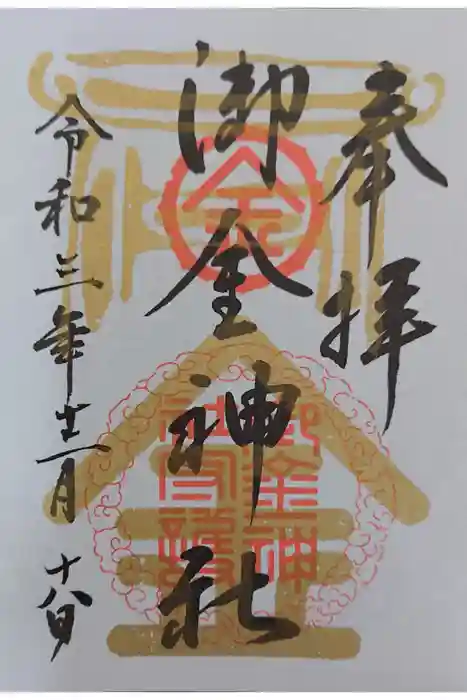 奉拝
御金神社
令和三年十一月十八日
金
御金神
社守護